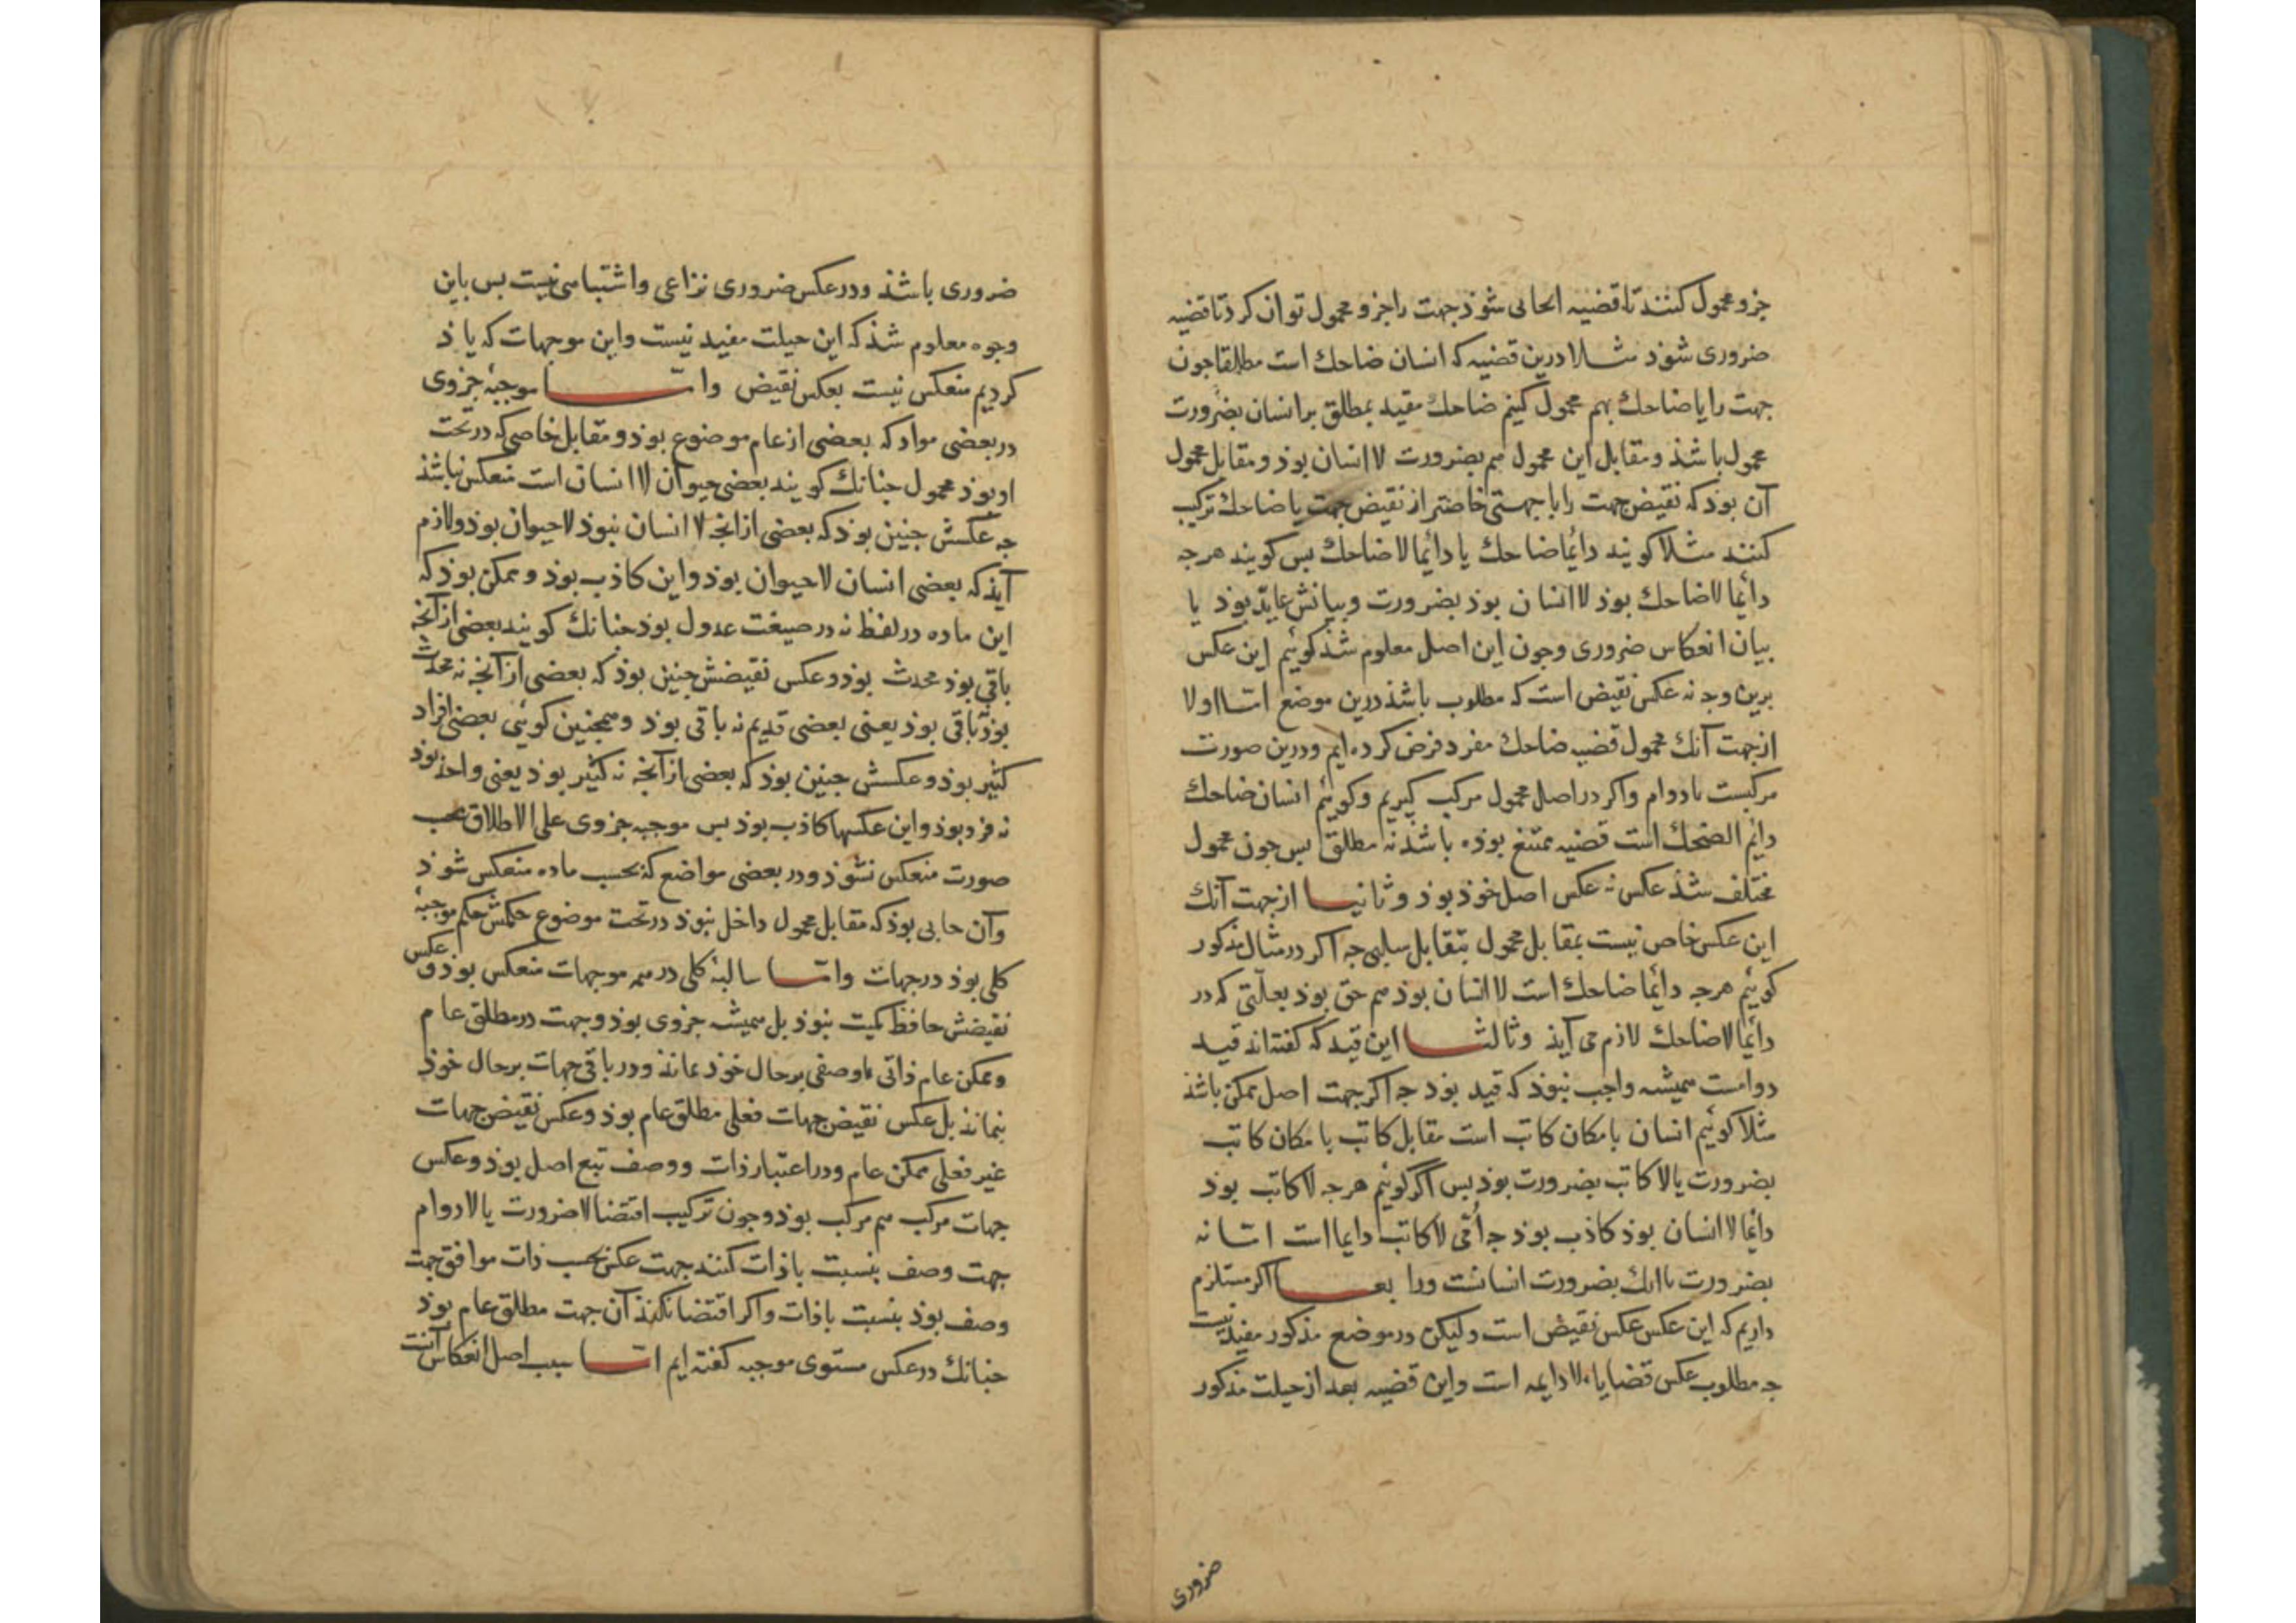 جزو محمول کنند تا قضیه الحاٯی شوذ جهت را جزو محمول توان کرد تا قضیه
ضروری شوذ مثلا درین قضیه که انسان ضاحك است مطلقا جون
جهت را با ضاحك بهم محمول کنیم ضاحك مقید بمطلق بر انسان بضرورت
محمول باشذ و مقابل این محمول هم بضرورت لا انسان بوذ و مقابل محمول
آن بوذ که نقیض جهت را با جهتی خاصتر از نقیض جهت با ضاحك ترکیب
کنند مثلا کویند دائما ضاحك یا دائما لا ضاحك بس کویند هرجه
دائما لا ضاحك بوذ لا انسان بوذ بضرورت و بیانش عاید بوذ با
بیان انعکاس ضروری و جون این اصل معلوم شذ کوئیم این عکس
برین وجه نه عکس نقیض است که مطلوب باشذ درین موضع اما اولا
از جهت آنك محمول قضیه ضاحك مفرد فرض کرده ایم و درین صورت
مرکبست با دوام و اکر در اصل محمول مرکب کیریم و کوییم انسان ضاحك
دایم الضحك است قضیه ممتنع بوذه باشذ نه مطلق بس جون محمول
مختلف شذ عکس نه عکس اصل خوذ بوذ و ثانیا از جهت آنك
این عکس خاص نیست بمقابل محمول بتقابل سلبی جه اکر در مثال مذکور
کوئیم هرجه دائما ضاحك است لا انسان بوذ هم حق بوذ بعلّتی که در
دائما لا ضاحك لازم می آیذ و ثالثا این قید که کفته اند قید
دوامست همیشه واجب نبوذ که قید بوذ جه اکر جهت اصل ممکن باشذ
مثلا کوئیم انسان بامکان کاتب است مقابل کاتب بامکان کاتب
بضرورت یا لا کاتب بضرورت بوذ بس اکر کوئیم هرجه لا کاتب بوذ
دائما لا انسان بوذ کاذب بوذ جه اُمّی لا کاتب دایما است اما نه
بضرورت با انك بضرورت انسانست و را بعا اکر مستلزم
داریم که این عکس عکس نقیض است ولیکن در موضع مذکور مفید نیست
جه مطلوب عکس قضایاء لا دایمه است و این قضیه بعد از حیلت مذکور
ضروری
ضروری باشذ و در عکس ضروری نزاعی و اشتباهی نیست بس باین
وجوه معلوم شذ که این حیلت مفید نیست و این موجهات که یاذ
کردیم منعکس نیست بعکس نقیض و امّا موجبهٔ جزوی
در بعضی مواد که بعضی از عام موضوع بوذ و مقابل خاصی که در تحت
او بوذ محمول جنانك کویند بعضی حیوان لا انسان است منعکس نباشذ
جه عکسش جنین بوذ که بعضی از انجه لا انسان نبوذ لا حیوان بوذ و لازم
آیذ که بعضی انسان لا حیوان بوذ و این کاذب بوذ و ممکن بوذ که
این ماده در لفظ نه در صیغت عدول بوذ جنانك کویند بعضی از آنجه
باقی بوذ محدث بوذ و عکس نقیضش جنین بوذ که بعضی از آنجه نه محدث
بوذ نه باقی بوذ یعنی بعضی قدیم نه باقی بوذ و همجنین کوئی بعضی افراد
کثیر بوذ و عکسش جنین بوذ که بعضی از آنجه نه کثیر بوذ یعنی واحذ بوذ
نه فرد بوذ و این عکسها کاذب بوذ بس موجبه جزوی علی الاطلاق بحسب
صورت منعکس نشوذ و در بعضی مواضع که بحسب ماده منعکس شوذ
و آن جایی بوذ که مقابل محمول داخل نبوذ در تحت موضوع حکمش حکم موجبهٔ
کلی بوذ در جهات و امّا سالبهٔ کلی در همه موجهات منعکس بوذ و عکس
نقیضش حافظ کمیت نبوذ بل همیشه جزوی بوذ و جهت در مطلق عام
و ممکن عام ذاتی یا وصفی بر حال خوذ بماند و در باقی جهات بر حال خوذ
نماند بل عکس نقیض جهات فعلی مطلق عام بوذ و عکس نقیض جهات
غیر فعلی ممکن عام و در اعتبار ذات و وصف تبع اصل بوذ و عکس
جهات مرکب هم مرکب بوذ و جون ترکیب اقتضا لا ضرورت یا لا دوام
جهت وصف بنسبت با ذات کنند جهت عکس بحسب ذات موافق جهت
وصف بوذ بنسبت با ذات و اکر اقتضا نکند آن جهت مطلق عام بوذ
جنانك در عکس مستوی موجبه کفته ایم امّا سبب اصل انعکاس آنست